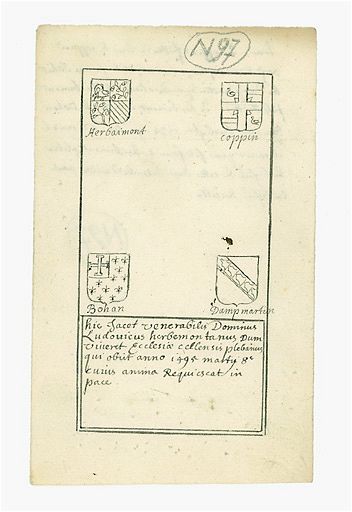 N 97
Herbaimont
Coppin
Bohan
Dampmartin
hic Jacet venerabilis Dominus
Ludovicus herbemontanus Dum
viveret Ecclesiæ cellensis plebanus
qui obiit anno 1495 martÿ 8ᵃ
cuius anima Requiescat in
pace